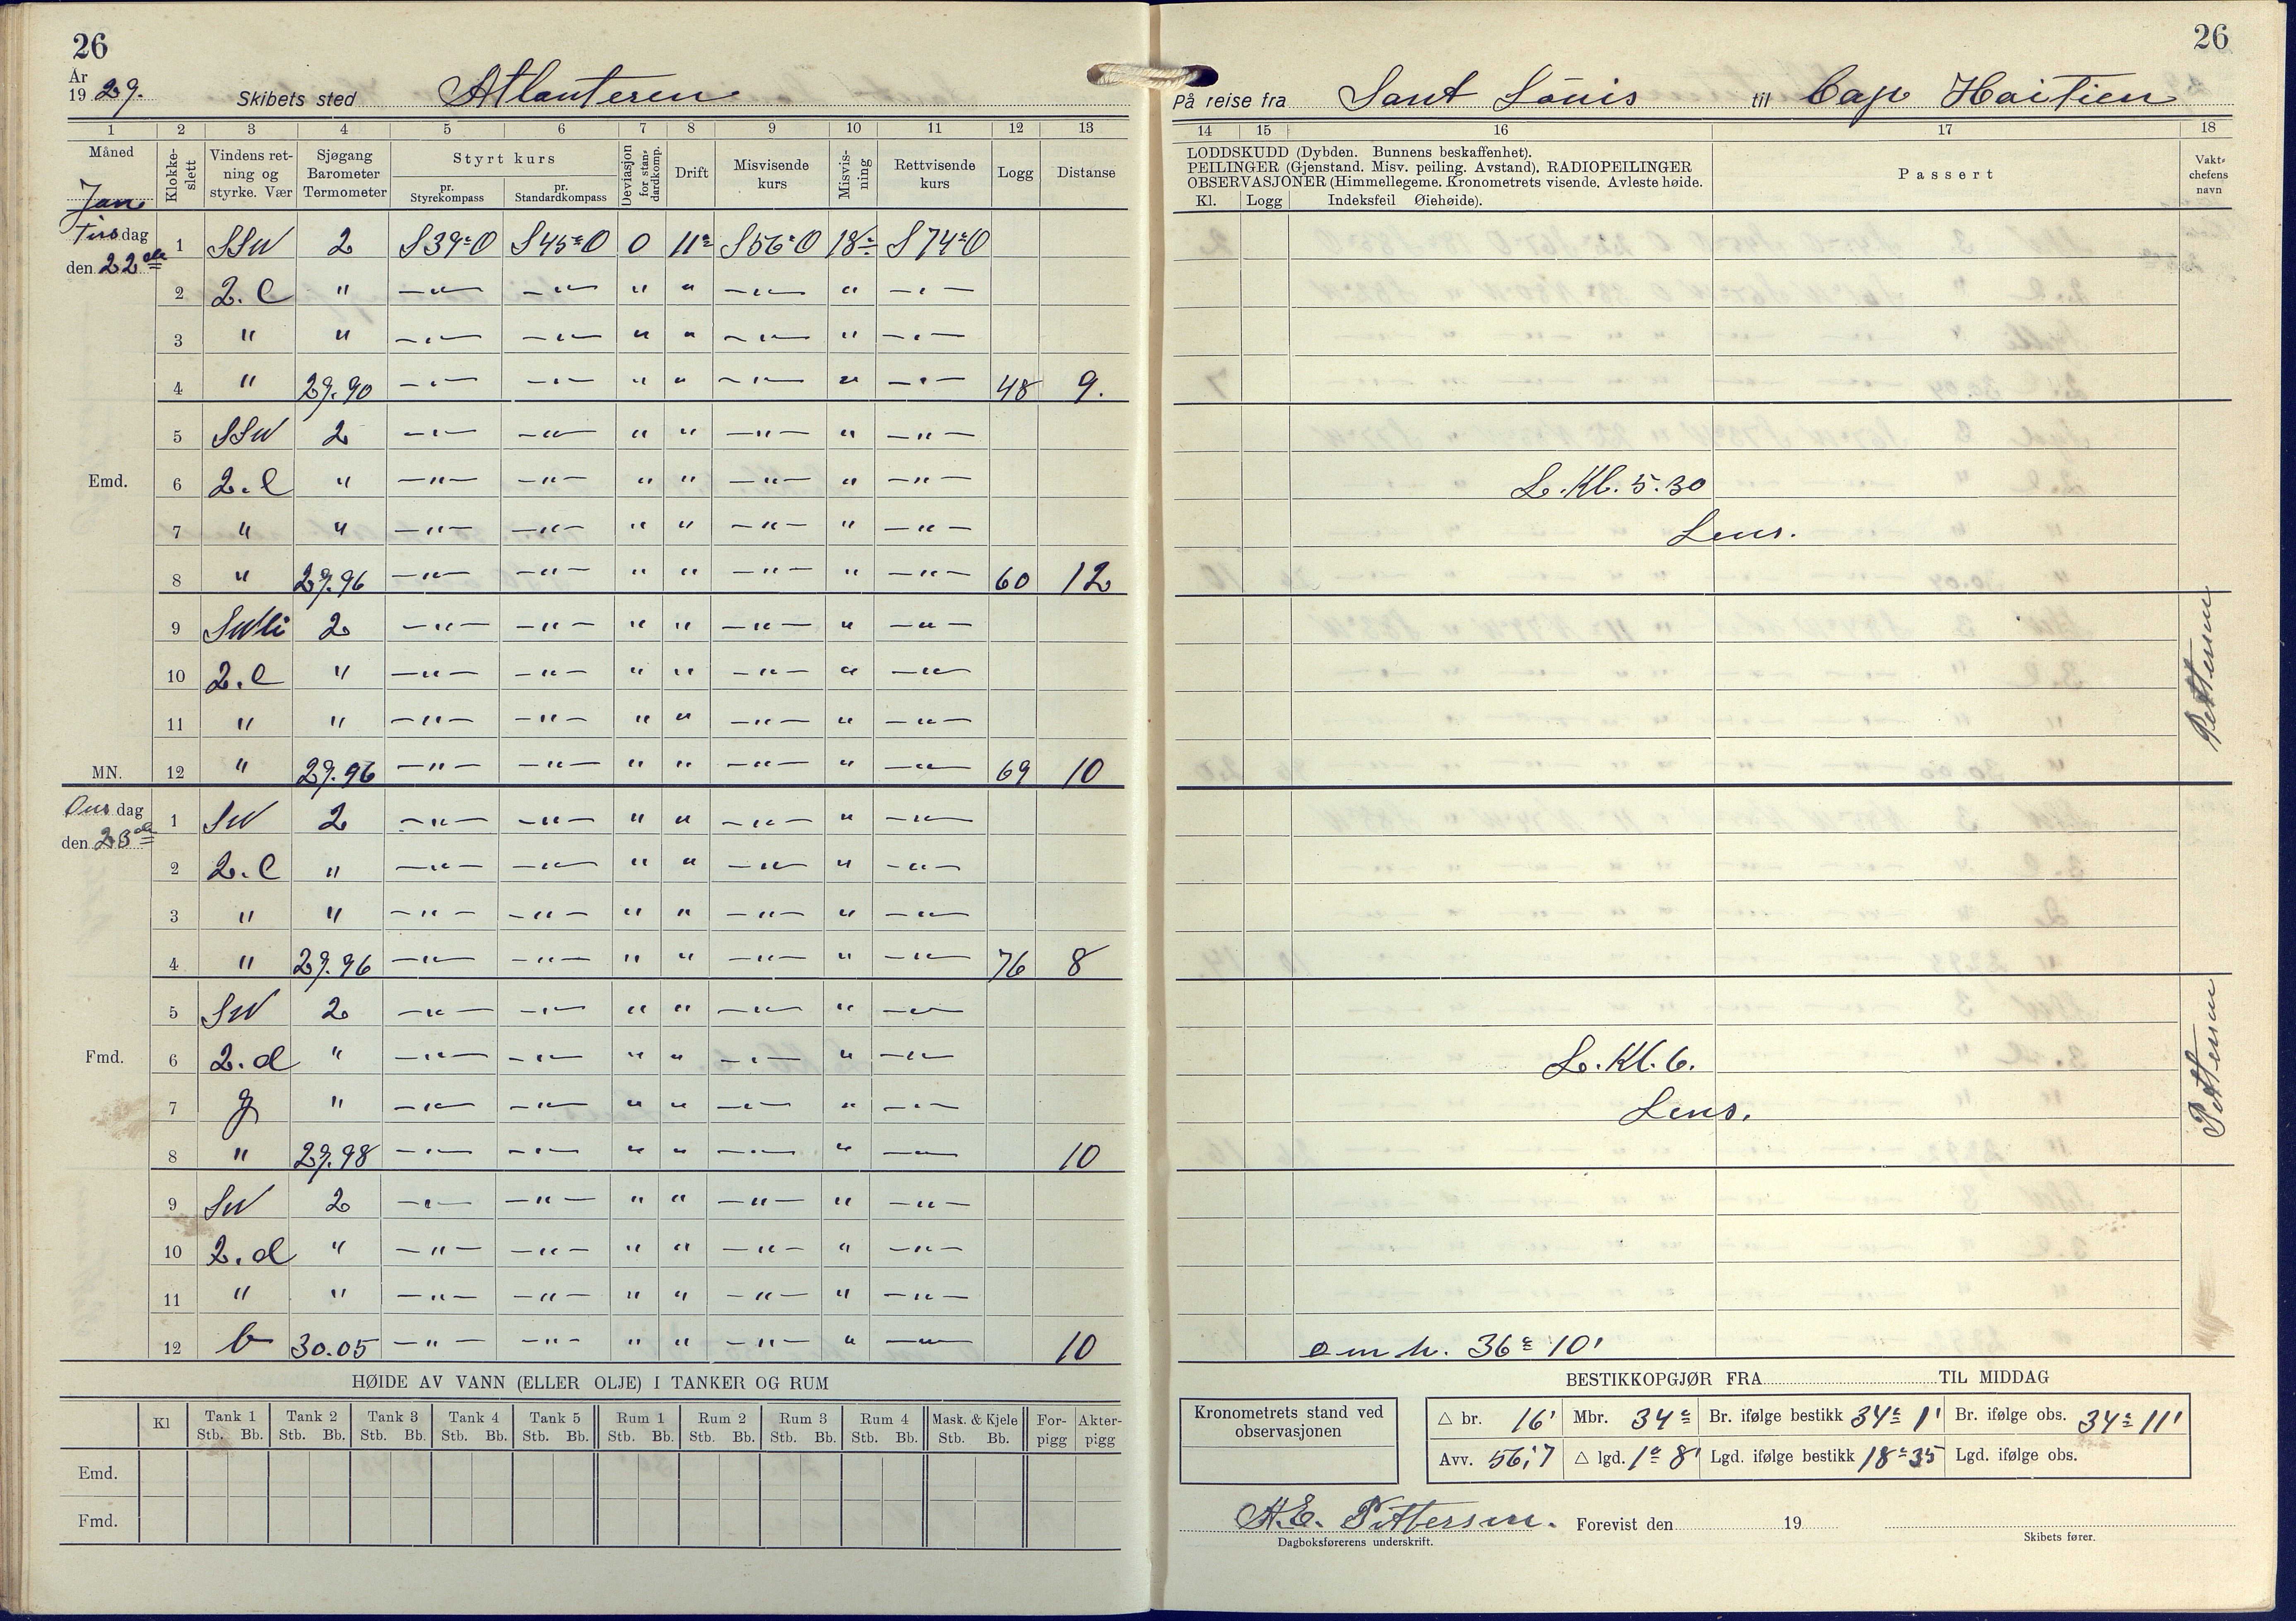 26
År
1929. Skibets sted Atlanteren
1 2 3 4 5 6 7 8 9 10 11 12 13
Måned Jan. Klokkeslett Vindens retning og styrke. Vær Sjøgang Barometer Termometer Styrt kurs pr. Styrekompass pr. Standardkompass Deviasjon for standardkomp. Drift Misvisende kurs Misvisning Rettvisende kurs Logg Distanse
Tirsdag den 22de 1 SSW 2 S39°O S45°O 0 11° S56°O 18° S74°O
2 2.C " —"— —"— " " —"— " —"—
3 " " —"— —"— " " —"— " —"—
4 " 29.90 —"— —"— " " —"— " —"— 48 9.
5 SSW 2 —"— —"— " " —"— " —"—
Emd. 6 2.C " —"— —"— " " —"— " —"—
7 " " —"— —"— " " —"— " —"—
8 " 29.96 —"— —"— " " —"— " —"— 60 12
9 2 —"— —"— " " —"— " —"—
10 2.C " —"— —"— " " —"— " —"—
11 " " —"— —"— " " —"— " —"—
MN. 12 " 29.96 —"— —"— " " —"— " —"— 69 10
Onsdag den 23de 1 SW 2 —"— —"— " " —"— " —"—
2 2.C " —"— —"— " " —"— " —"—
3 " " —"— —"— " " —"— " —"—
4 " 29.96 —"— —"— " " —"— " —"— 76 8
5 SW 2 —"— —"— " " —"— " —"—
Fmd. 6 2.d " —"— —"— " " —"— " —"—
7 g " —"— —"— " " —"— " —"—
8 " 29.98 —"— —"— " " —"— " —"— 10
9 SW 2 —"— —"— " " —"— " —"—
10 2.d " —"— —"— " " —"— " —"—
11 " " —"— —"— " " —"— " —"—
12 b 30.05 —"— —"— " " —"— " —"— 10
HØIDE AV VANN (ELLER OLJE) I TANKER OG RUM
Kl Tank 1 Tank 2 Tank 3 Tank 4 Tank 5 Rum 1 Rum 2 Rum 3 Rum 4 Mask. & Kjele For-pigg Akter-pigg
Stb. Bb. Stb. Bb. Stb. Bb. Stb. Bb. Stb. Bb. Stb. Bb. Stb. Bb. Stb. Bb. Stb. Bb. Stb. Bb.
Emd.
Fmd.
26
På reise fra Sant Louis til Cap Haitien
14 15 16 17 18
LODDSKUDD (Dybden. Bunnens beskaffenhet).
PEILINGER (Gjenstand. Misv. peiling. Avstand). RADIOPEILINGER
OBSERVASJONER (Himmellegeme. Kronometrets visende. Avleste høide.
Kl. Logg Indeksfeil Øiehøide).
Passert
Vakt-chefens navn
L. Kl. 5.30
Lens.
Pettersen
L. Kl. 6.
Lens.
Pettersen
o m h. 36° 10'
BESTIKKOPGJØR FRA TIL MIDDAG
Kronometrets stand ved observasjonen
△ br. 16' Mbr. 34° Br. ifølge bestikk 34° 1' Br. ifølge obs. 34° 11'
Avv. 56,'7 △ lgd. 1° 8' Lgd. ifølge bestikk 18° 35 Lgd. ifølge obs.
A.E. Pettersen. Forevist den 19
Dagboksførerens underskrift. Skibets fører.